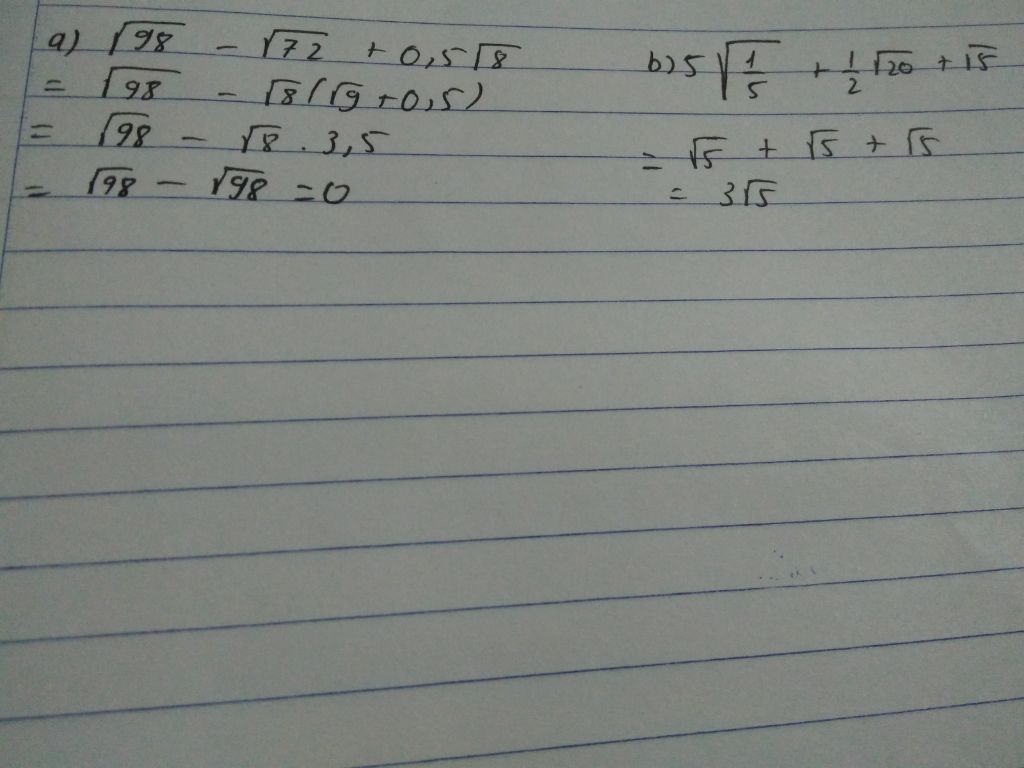 a) √98 - √72 + 0,5√8
= √98 - √8(√9 + 0,5)
= √98 - √8 . 3,5
= √98 - √98 = 0
b) 5√(1/5) + 1/2 √20 + √5
= √5 + √5 + √5
= 3√5